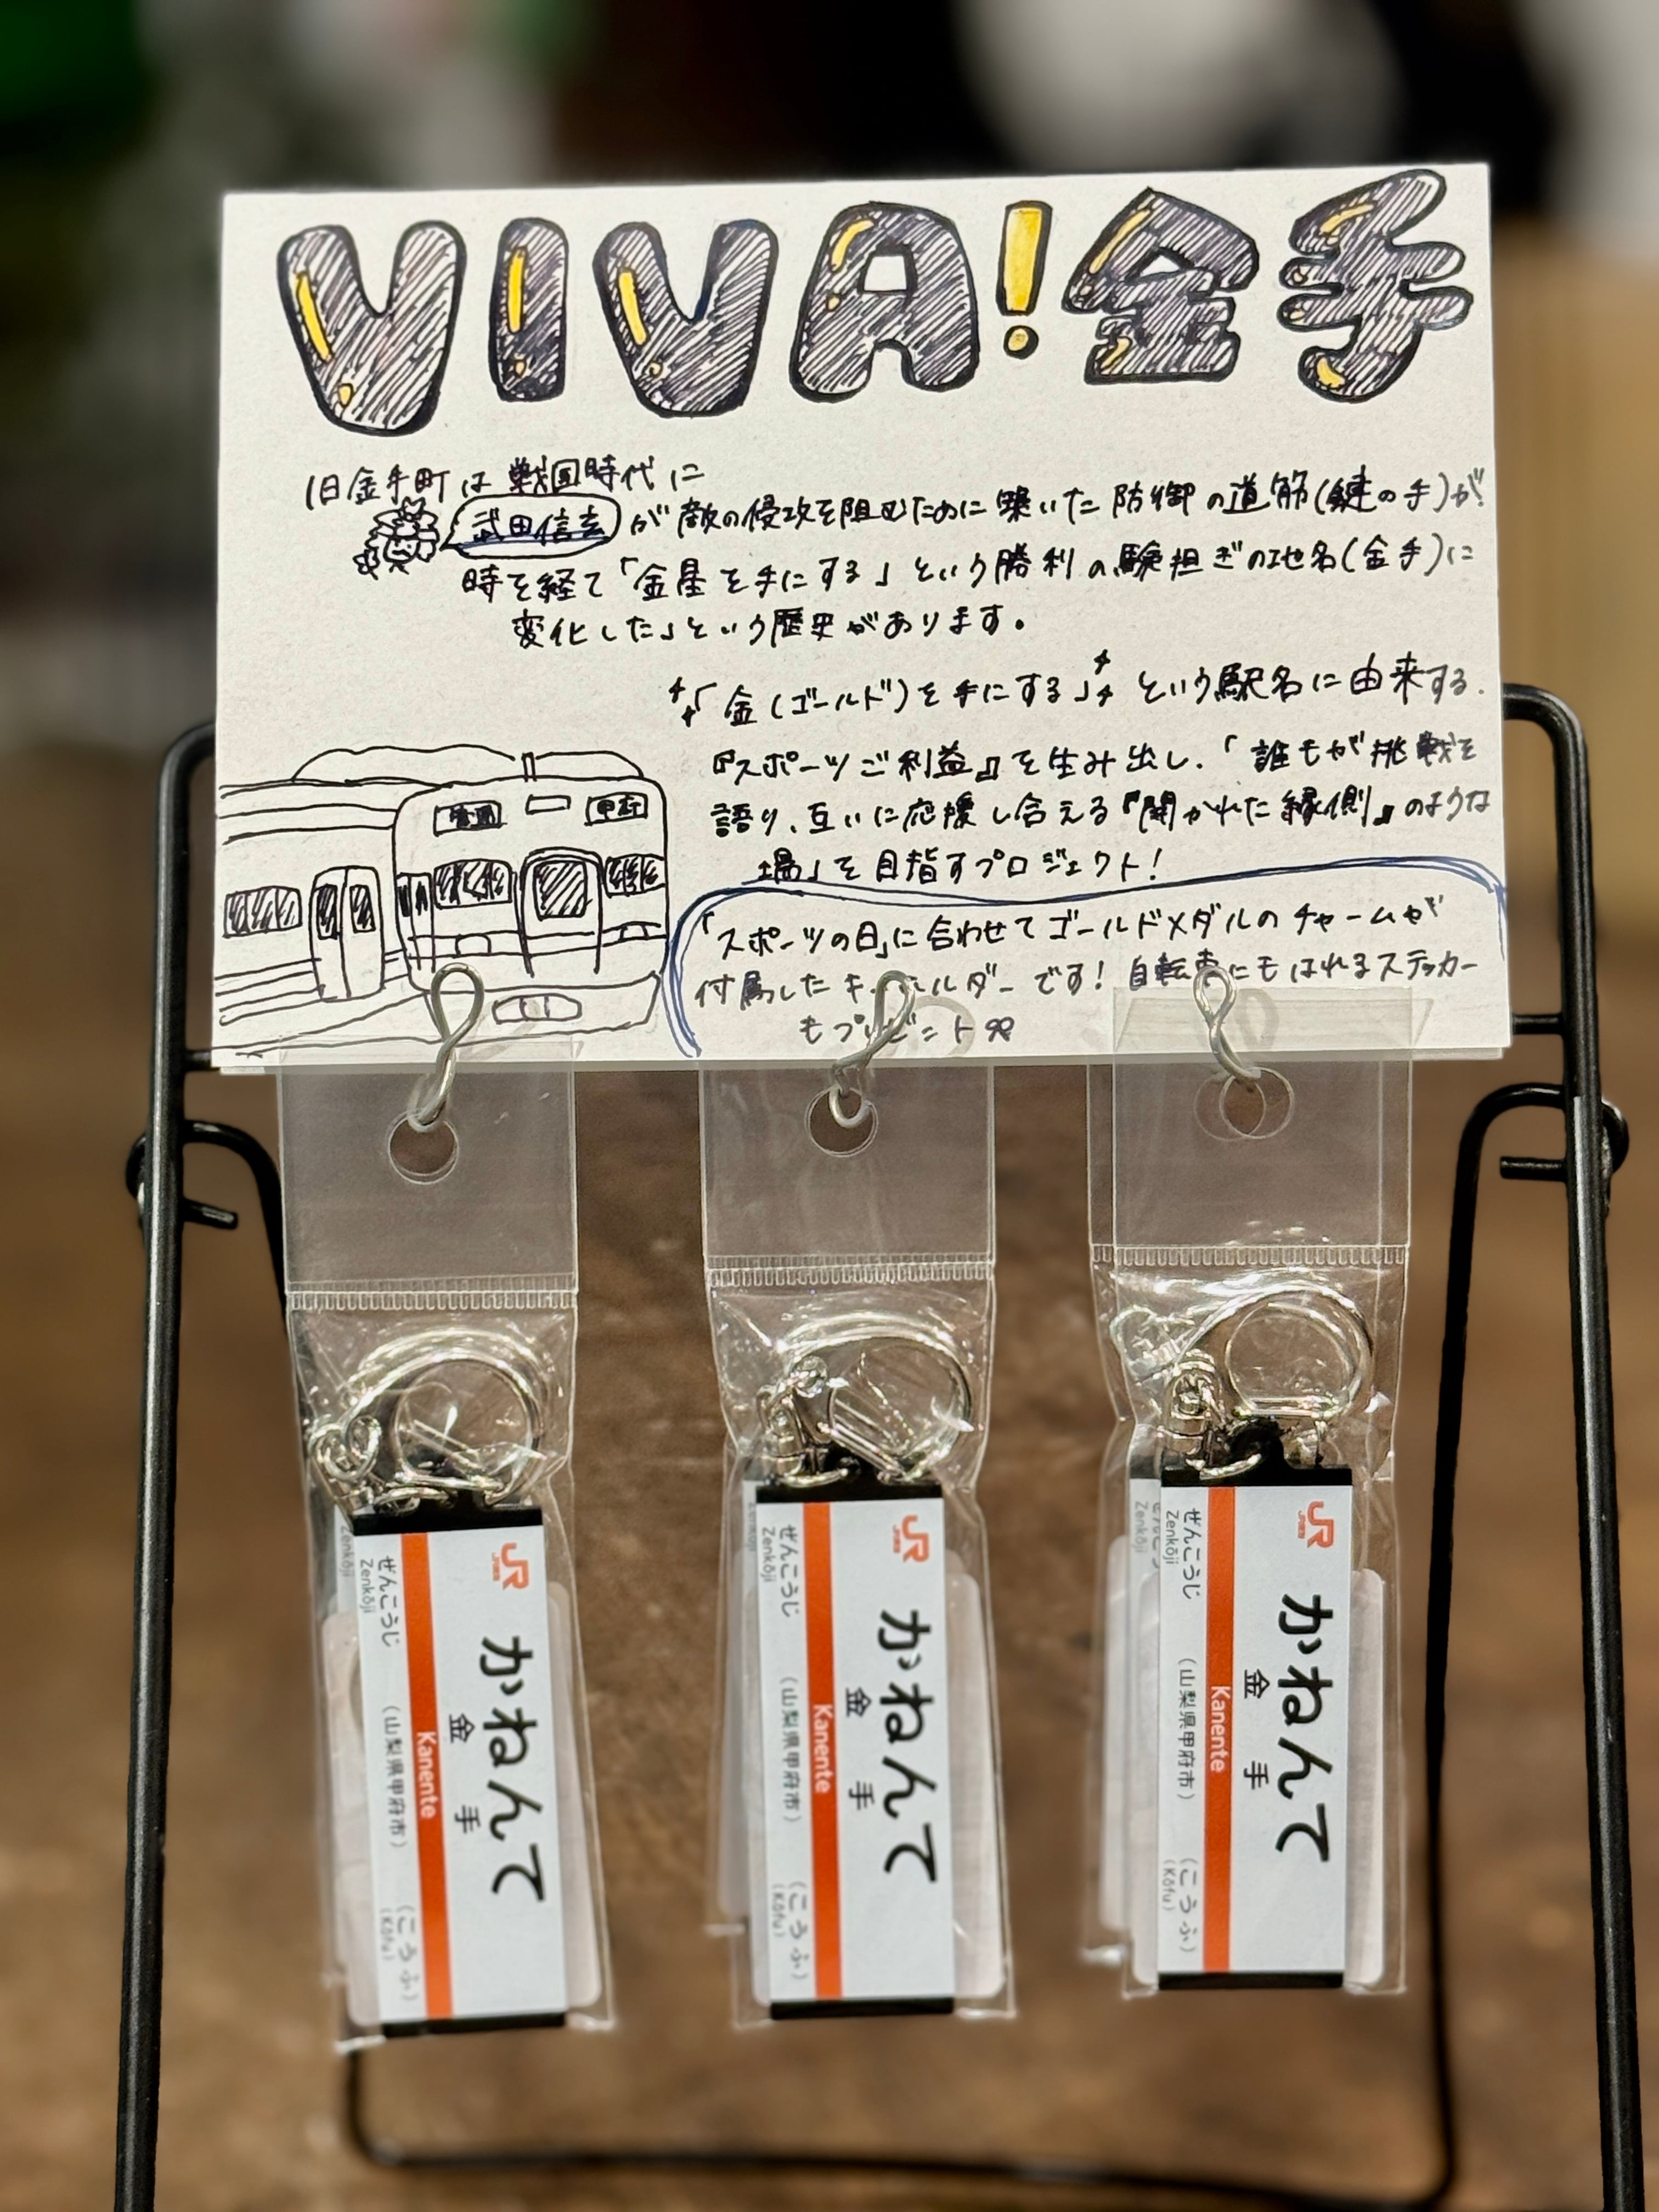 VIVA!金手
旧金手町は戦国時代に
武田信玄が敵の侵攻を阻むために築いた防御の道筋(鍵の手)が
時を経て「金星を手にする」という勝利の験担ぎの地名(金手)に
変化した」という歴史があります。
「金(ゴールド)を手にする」という駅名に由来する
『スポーツご利益』を生み出し、「誰もが挑戦を
語り、互いに応援し合える『開かれた縁側』のような
場」を目指すプロジェクト!
普通 甲府
「スポーツの日」に合わせてゴールドメダルのチャームが
付属したキーホルダーです!自転車にもはれるステッカー
もプレゼント
JR
かねんて
金手
Kanente
(山梨県甲府市)
ぜんこうじ
Zenkōji
(こうふ)
(Kōfu)
Zenkōji
JR
かねんて
金手
Kanente
(山梨県甲府市)
ぜんこうじ
Zenkōji
(こうふ)
(Kōfu)
JR
かねんて
金手
Kanente
(山梨県甲府市)
ぜんこうじ
Zenkōji
(こうふ)
(Kōfu)
Zenkōji